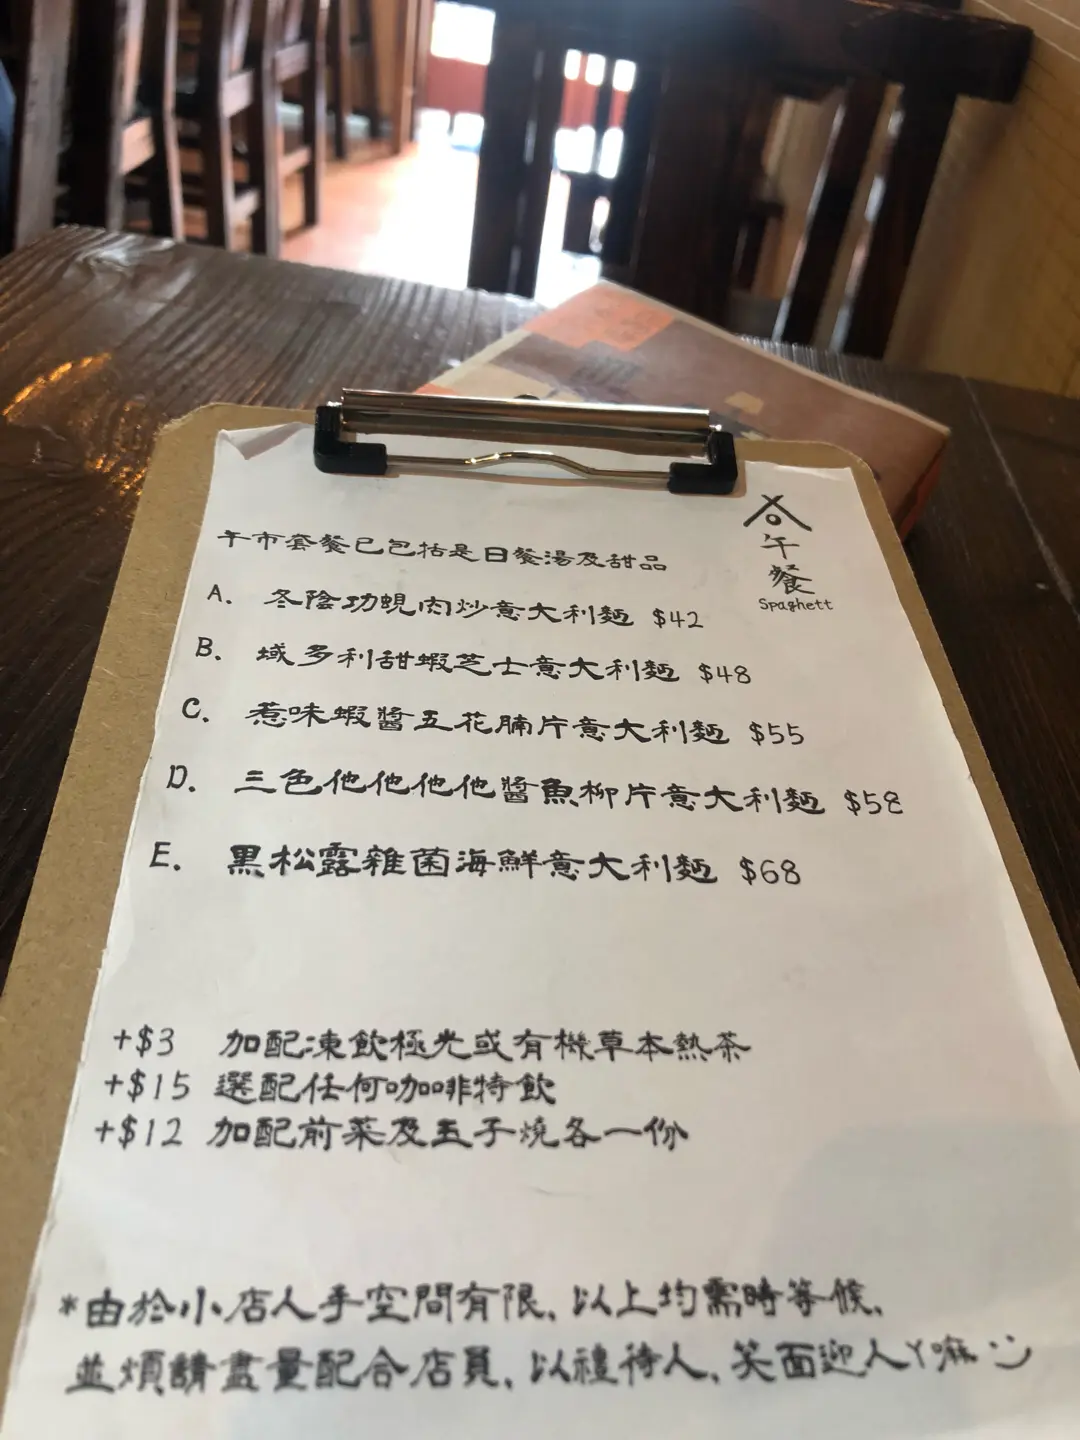 午市套餐已包括是日餐湯及甜品
午
餐
Spaghett
A. 冬陰功蜆肉炒意大利麵 $42
B. 域多利甜蝦芝士意大利麵 $48
C. 惹味蝦醬五花腩片意大利麵 $55
D. 三色他他他他醬魚柳片意大利麵 $58
E. 黑松露雜菌海鮮意大利麵 $68
+$3 加配凍飲極光或有機草本熱茶
+$15 選配任何咖啡特飲
+$12 加配前菜及玉子燒各一份
*由於小店人手空間有限,以上均需時等候,
並煩請盡量配合店員,以禮待人,笑面迎人丫嘛